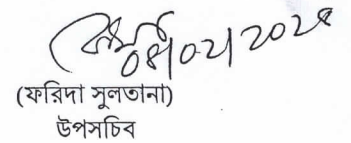 04/02/2024
(ফরিদা সুলতানা)
উপসচিব